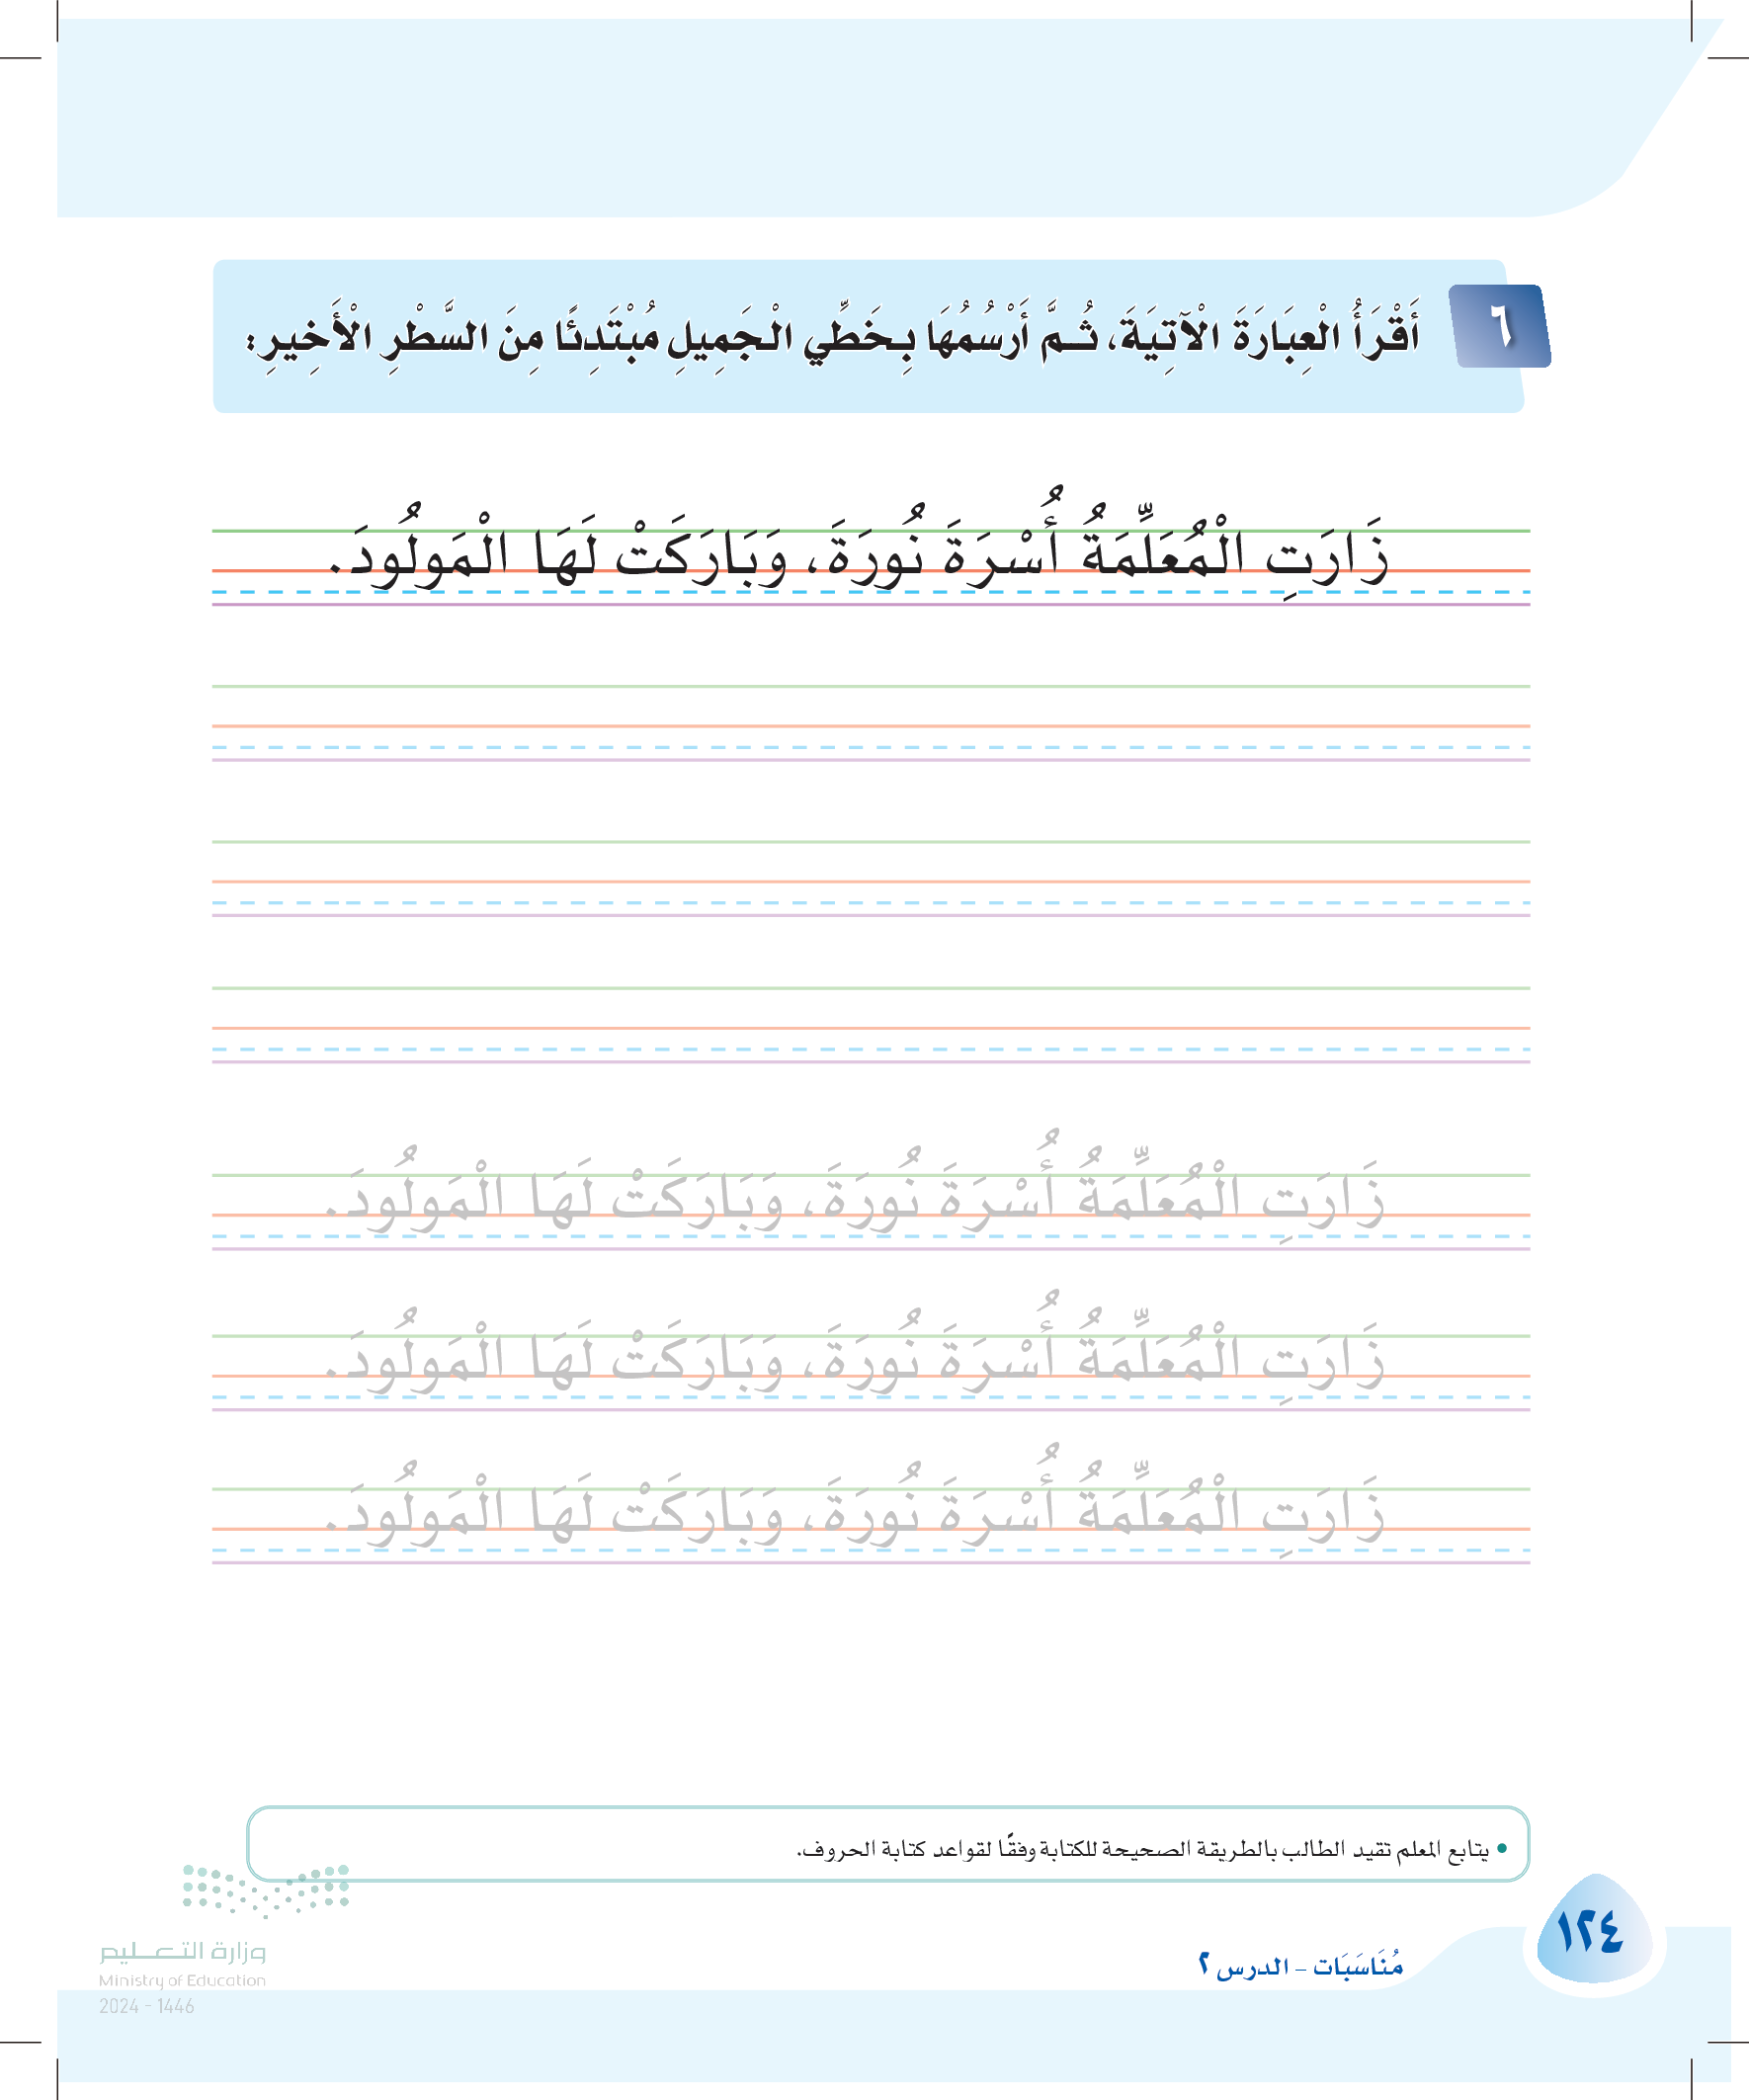 ٦
أَقْرَأُ الْعِبَارَةَ الْآتِيَةَ، ثُـمَّ أَرْسُمُهَا بِـخَطِّي الْجَمِيلِ مُبْتَدِئًا مِنَ السَّطْرِ الْأَخِيرِ:
زَارَتِ الْمُعَلِّمَةُ أُسْرَةَ نُورَةَ، وَبَارَكَتْ لَهَا الْمَولُودَ.
زَارَتِ الْمُعَلِّمَةُ أُسْرَةَ نُورَةَ، وَبَارَكَتْ لَهَا الْمَولُودَ.
زَارَتِ الْمُعَلِّمَةُ أُسْرَةَ نُورَةَ، وَبَارَكَتْ لَهَا الْمَولُودَ.
زَارَتِ الْمُعَلِّمَةُ أُسْرَةَ نُورَةَ، وَبَارَكَتْ لَهَا الْمَولُودَ.
• يتابع المعلم تقيد الطالب بالطريقة الصحيحة للكتابة وفقًا لقواعد كتابة الحروف.
١٢٤
مُنَاسَبَات - الدرس ٢
وزارة التعليم
Ministry of Education
2024 - 1446